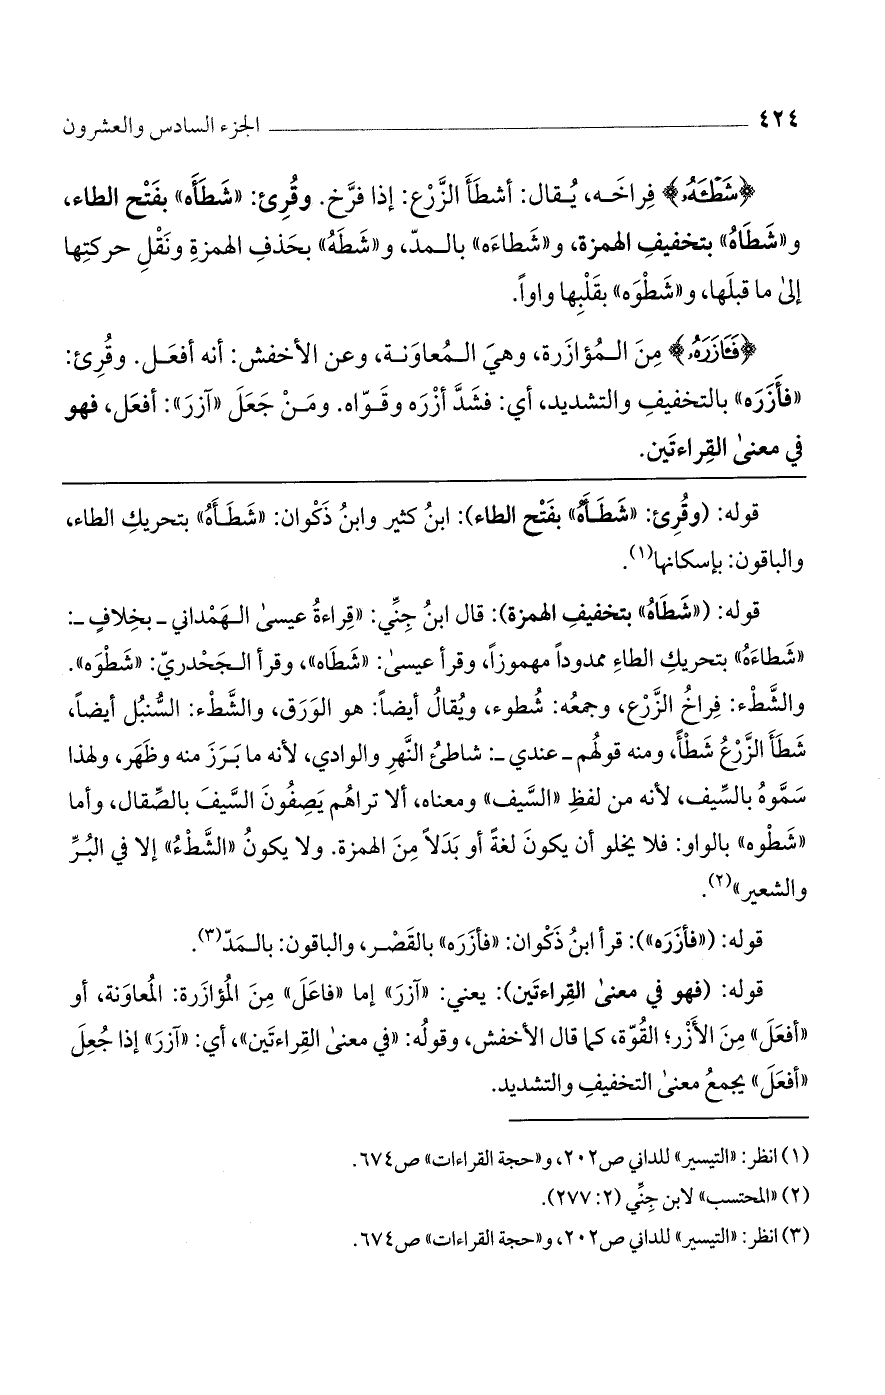 ٤٢٤ ــــــــــ الجزء السادس والعشرون
﴿شَطْـَٔهُۥ﴾ فِراخَـه، يُـقال: أشطَأَ الزَّرْع: إذا فرَّخ. وقُرِئ: «شَطَأَه» بفَتْح الطاء،
و«شَطَاهُ» بتخفيفِ الهمزة، و«شَطاءَه» بالـمدّ، و«شَطَهُ» بحَذفِ الهمزةِ ونَقْلِ حركتِها
إلىٰ ما قبلَها، و«شَطْوَه» بقَلْبِها واواً.
﴿فَـَٔازَرَهُۥ﴾ مِنَ الـمُؤازَرة، وهيَ الـمُعاوَنـة، وعن الأخفش: أنه أفعَـل. وقُرِئ:
«فأَزَرَه» بالتخفيفِ والتشديد، أي: فشَدَّ أزْرَه وقَـوّاه. ومَـنْ جَعَلَ «آزرَ»: أفعَل، فهو
في معنىٰ القِراءتَين.
قوله: (وقُرِئ: «شَطَـأَهُ» بفَتْح الطاء): ابنُ كثير وابنُ ذَكْوان: «شَطَـأَهُ» بتحريكِ الطاء،
والباقون: بإسكانها(١).
قوله: («شَطَاهُ» بتخفيفِ الهمزة): قال ابنُ جِنِّي: «قِراءةُ عيسىٰ الـهَمْداني ـ بخِلافٍ ـ:
«شَطاءَهُ» بتحريكِ الطاءِ ممدوداً مهموزاً، وقرأ عيسىٰ: «شَطَاه»، وقرأ الـجَحْدريّ: «شَطْوَه».
والشَّطْء: فِراخُ الزَّرْع، وجمعُه: شُطوء، ويُقالُ أيضاً: هو الوَرَق، والشَّطْء: السُّنبُل أيضاً،
شَطَأَ الزَّرْعُ شَطْأً، ومنه قولُهم ـ عندي ـ: شاطئُ النَّهرِ والوادي، لأنه ما بَـرَزَ منه وظَهَر، ولهذا
سَمَّوهُ بالسِّيف، لأنه من لفظِ «السَّيف» ومعناه، ألا تراهُم يَصِفُونَ السَّيفَ بالصِّقال، وأما
«شَطْوه» بالواو: فلا يخلو أن يكونَ لغةً أو بَدَلاً مِنَ الهمزة. ولا يكونُ «الشَّطْءُ» إلا في البُرِّ
والشعير»(٢).
قوله: («فأزَرَه»): قرأ ابنُ ذَكْوان: «فأزَرَه» بالقَصْـر، والباقون: بالـمَدّ(٣).
قوله: (فهو في معنىٰ القِراءتَين): يعني: «آزرَ» إما «فاعَلَ» مِنَ المُؤازَرة: المُعاوَنة، أو
«أفعَلَ» مِنَ الأَزْر؛ القُوّة، كما قال الأخفش، وقولُه: «في معنىٰ القِراءتَين»، أي: «آزرَ» إذا جُعِلَ
«أفعَلَ» يجمعُ معنىٰ التخفيفِ والتشديد.
(١) انظر: «التيسير» للداني ص٢٠٢، و«حجة القراءات» ص٦٧٤.
(٢) «المحتسب» لابن جِنِّي (٢: ٢٧٧).
(٣) انظر: «التيسير» للداني ص٢٠٢، و«حجة القراءات» ص٦٧٤.